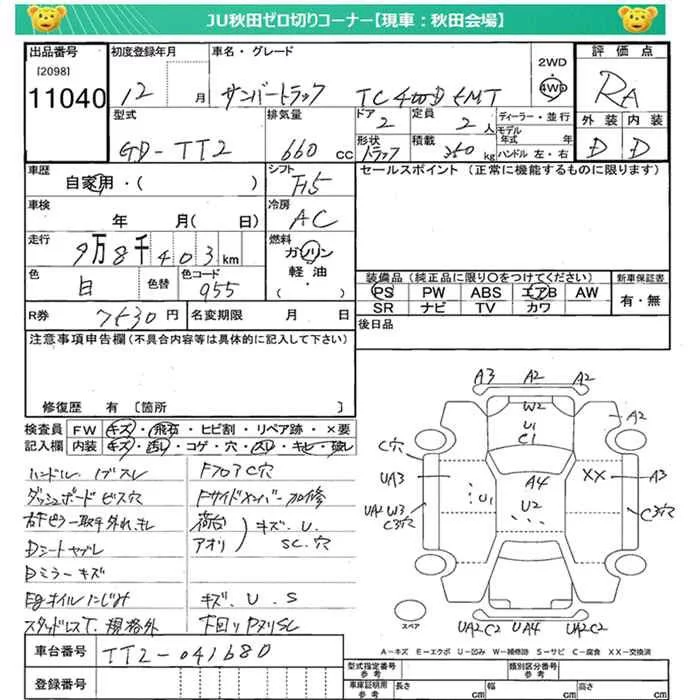 JU秋田ゼロ切りコーナー【現車：秋田会場】
出品番号
[2098]
11040
初度登録年月
12 月
車名・グレード
サンバートラック TC 4WD 5MT
2WD
4WD
評価点
RA
外装 内装
D D
型式
GD-TT2
排気量
660 cc
ドア
2
定員
2 人
形状
トラック
積載
350 kg
ディーラー・並行
モデル年式 年
ハンドル 左・右
車歴
自家用・( )
シフト
F5
車検
年 月( 日)
冷房
AC
走行
9万8千403 km
燃料
ガソリン
軽油・
( )
色
白
色替
色コード
955
R券
7530 円
名変期限 月 日
セールスポイント（正常に機能するものに限ります）
装備品（純正品に限り○をつけてください）
PS PW ABS エアB AW
SR ナビ TV カワ
新車保証書
有・無
後日品
注意事項申告欄（不具合内容等は具体的に記入して下さい）
修復歴 有 〔箇所 〕
検査員記入欄
FW キズ・飛石・ヒビ割・リペア跡・×要
内装 キズ・汚レ・コゲ・穴・スレ・キレ・破レ
ハンドル、ノブスレ
ダッシュボードビス穴
Dシートヤブレ
Dミラーキズ
Egオイルにじみ
スタッドレスT. 規格外
FフロアC穴
Fサイドメンバー加修
荷台
アオリ
キズ、U、
SC、穴
キズ、U、S
下回りPヌリSC
A3 A2 A2
W2
U1
C1
A2
C穴
UA3
UA2 W3
C3穴
U1
A4
U2
XX
A3
C3穴
UA2C2 UA4 UA2C2
スペア
A－キズ E－エクボ U－凹み W－補修跡 S－サビ C－腐食 XX－交換済
車台番号
TT2-041680
登録番号
型式指定番号
参考
類別区分番号
参考
車庫証明用
参考
長さ cm
幅 cm
高さ cm